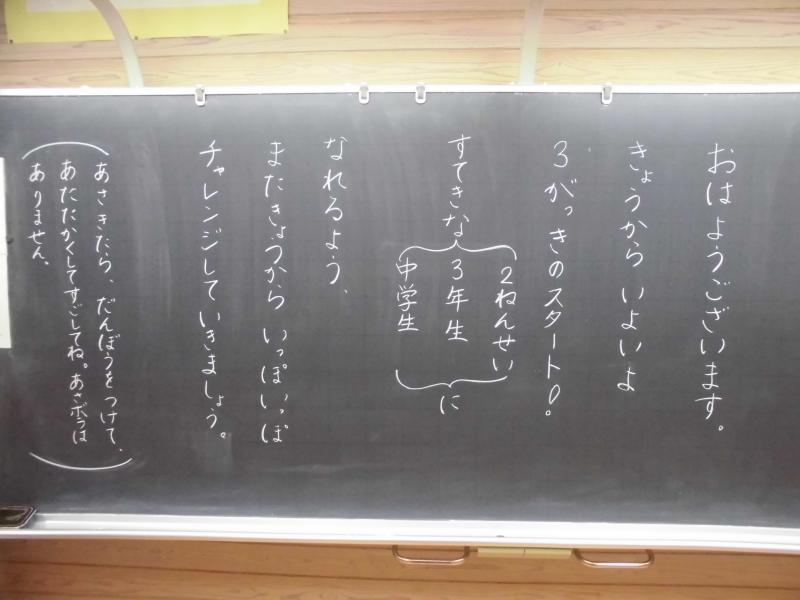 おはようございます。
きょうから いよいよ
3がっきのスタート!
すてきな
2ねんせい
3年生
中学生
に
なれるよう、
またきょうから いっぽいっぽ
チャレンジしていきましょう。
(あさきたら、だんぼうをつけて、
あたたかくしてすごしてね。あさボラは
ありません。)